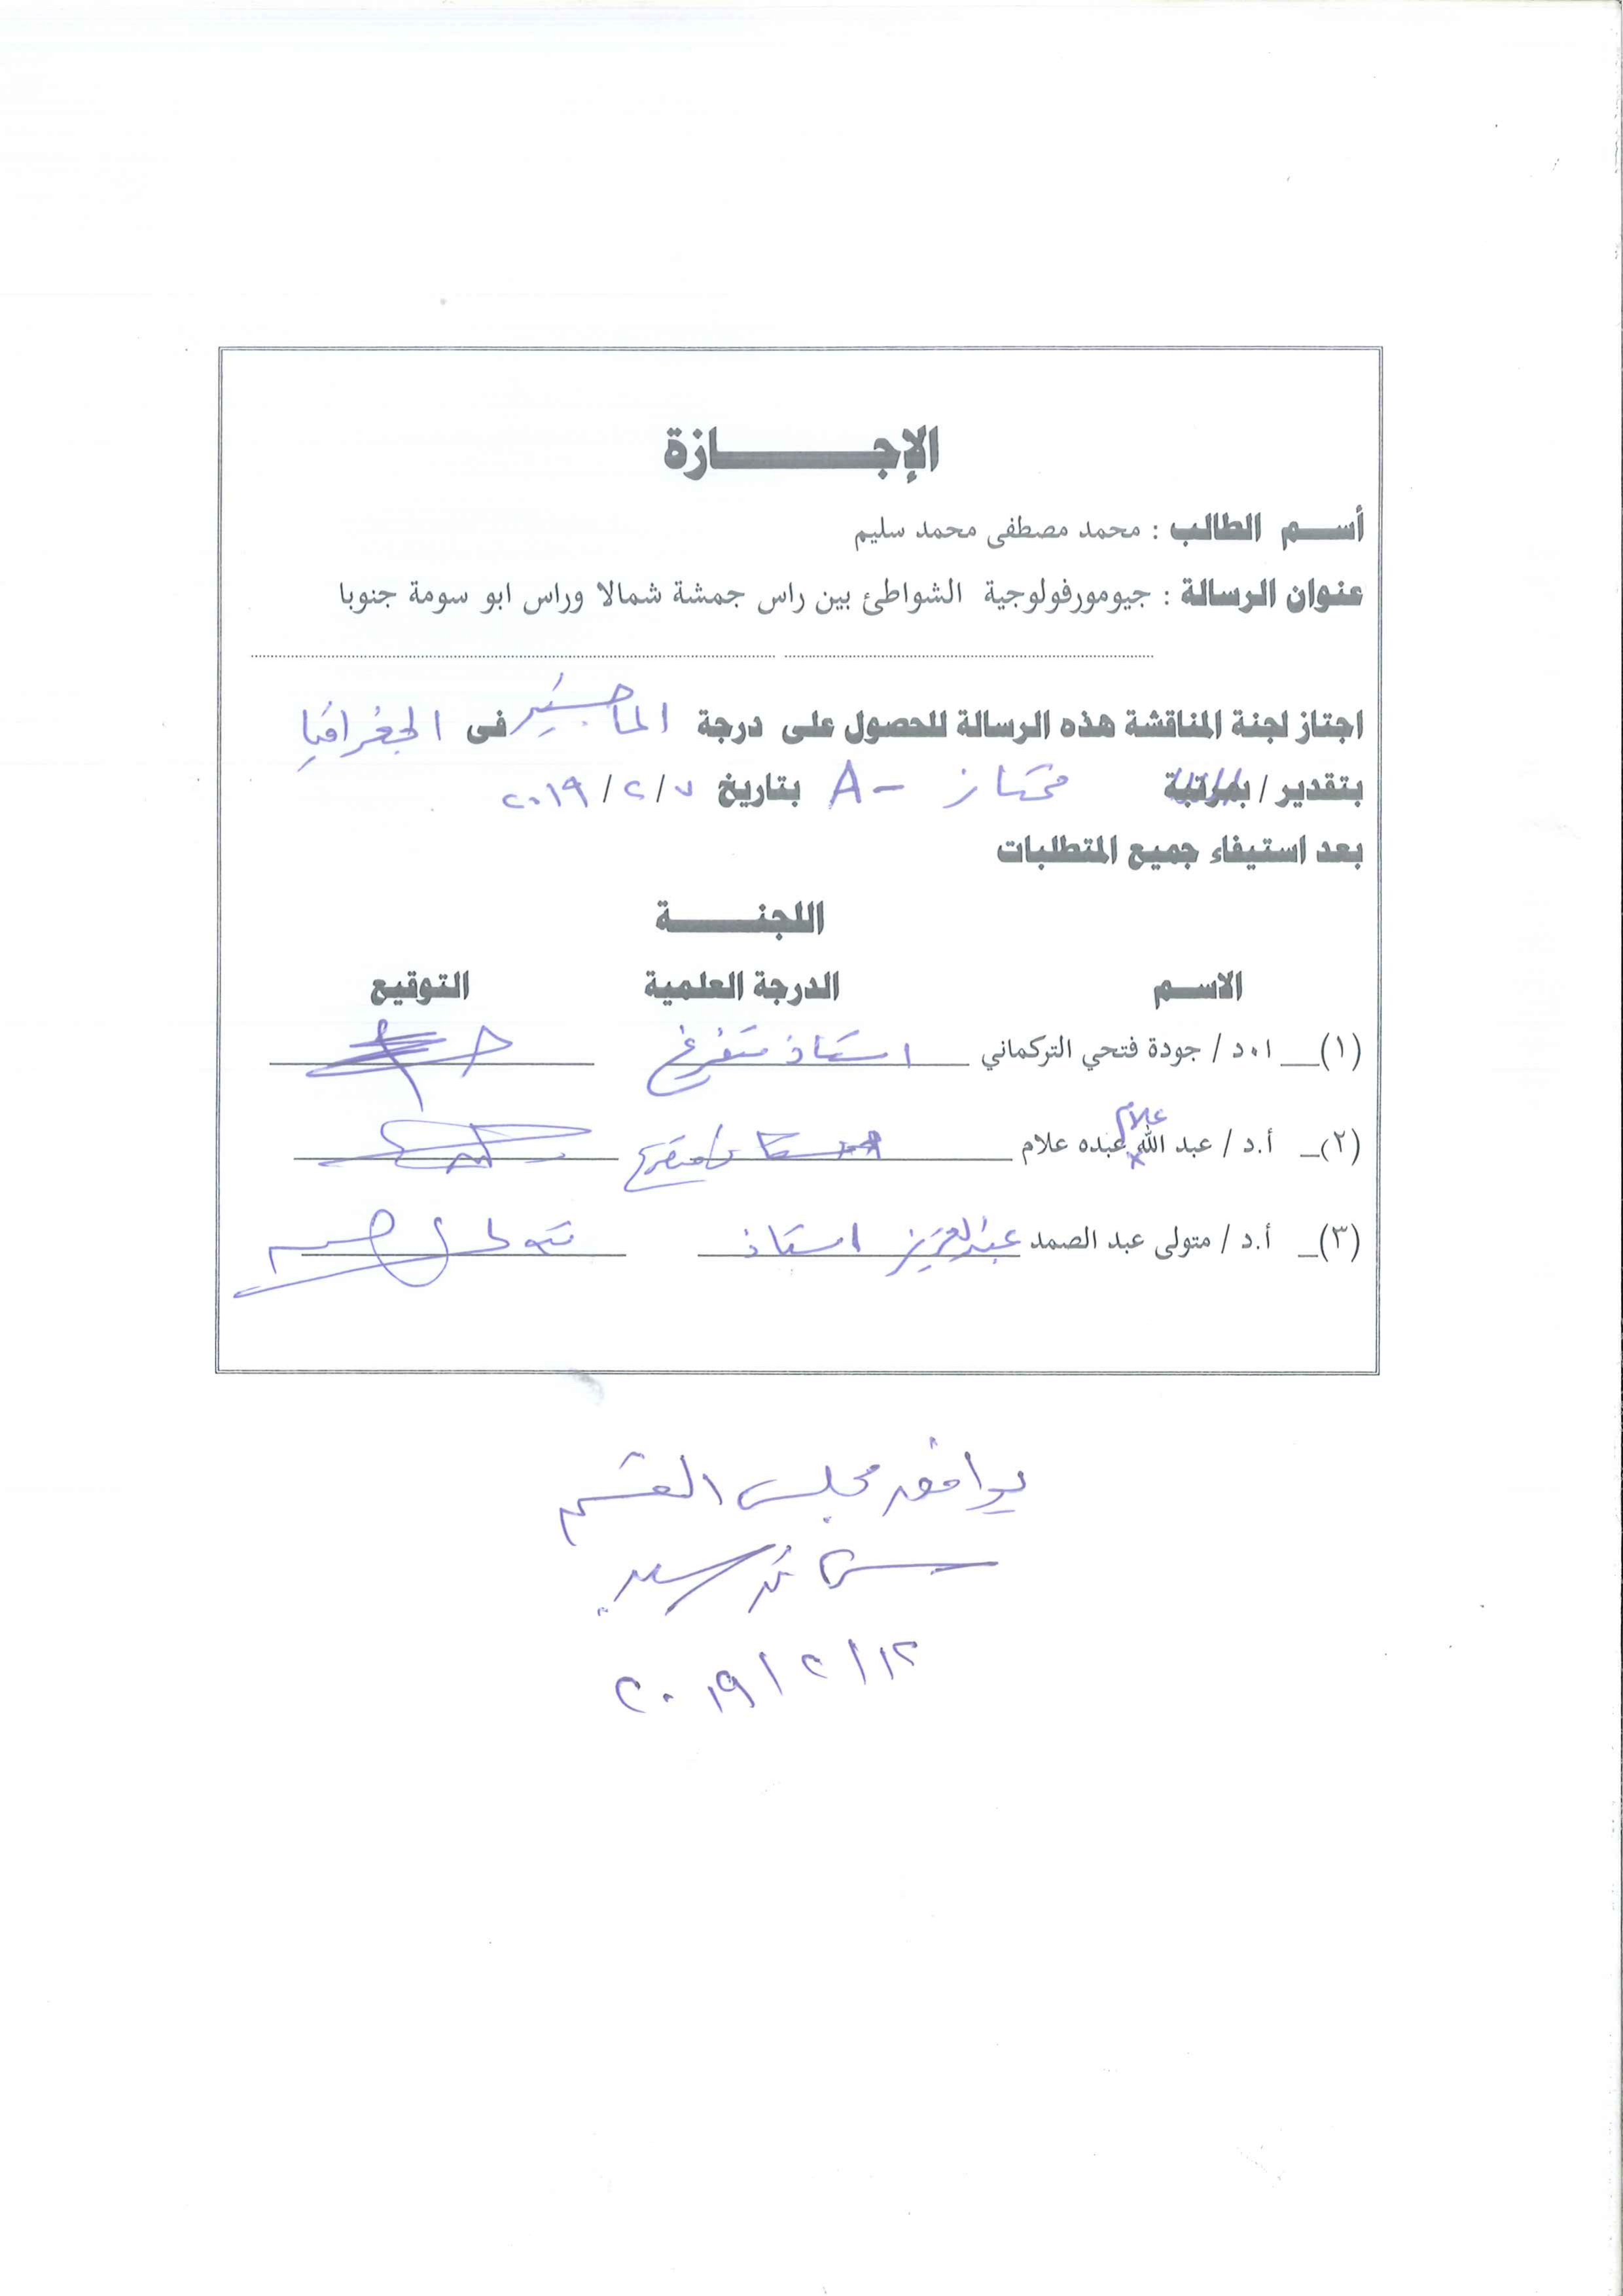 الإجـــــــــازة
أســـم الطالب : محمد مصطفى محمد سليم
عنوان الرسالة : جيومورفولوجية الشواطئ بين راس جمشة شمالا وراس ابو سومة جنوبا
اجتاز لجنة المناقشة هذه الرسالة للحصول على درجة الماجستير فى الجغرافيا
بتقدير / بمرتبة ممتاز A- بتاريخ ٧ / ٢ / ٢٠١٩
بعد استيفاء جميع المتطلبات
اللجنــــــــة
الاســـم الدرجة العلمية التوقيع
(١)__ ا.د / جودة فتحي التركماني استاذ متفرغ
علام
(٢)_ أ.د / عبد الله عبده علام استاذ متفرغ
(٣)_ أ.د / متولى عبد الصمد عبدالعزيز استاذ
يوافق مجلس القسم
٢٠١٩ / ٢ / ١٢